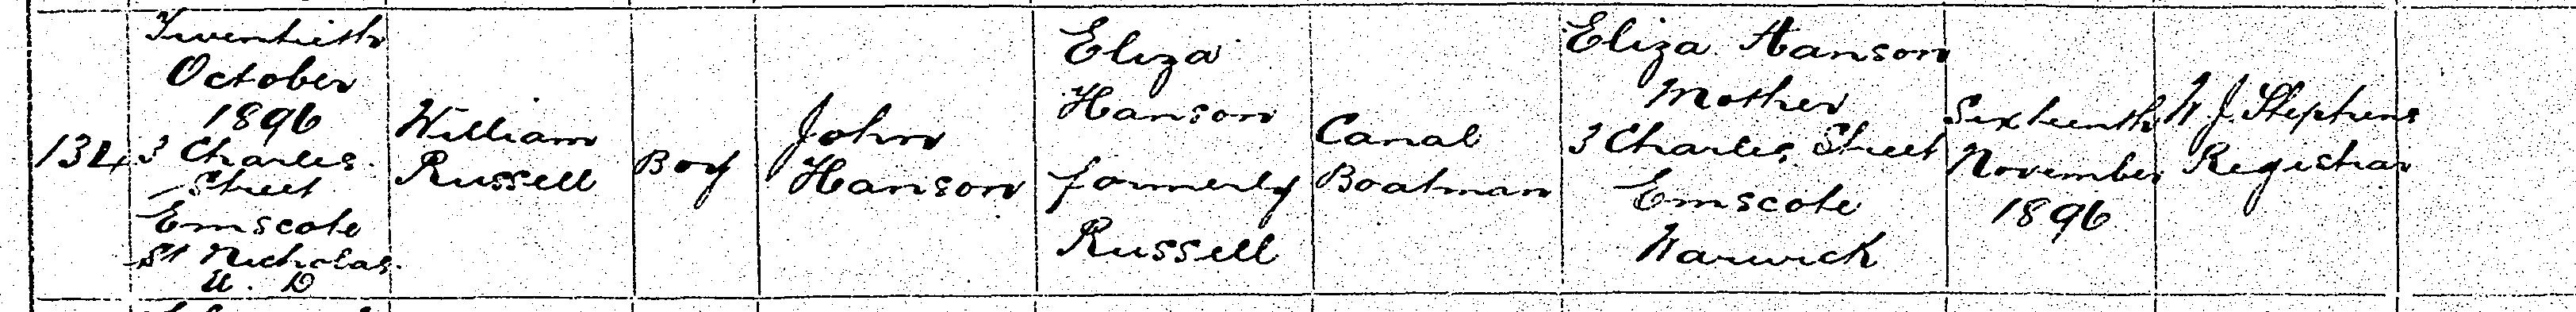 134
Twentieth
October
1896
3 Charles
Street
Emscote
St Nicholas
U. D
William
Russell
Boy
John
Hanson
Eliza
Hanson
formerly
Russell
Canal
Boatman
Eliza Hanson
Mother
3 Charles Street
Emscote
Warwick
Sixteenth
November
1896
W J. Stephens
Registrar